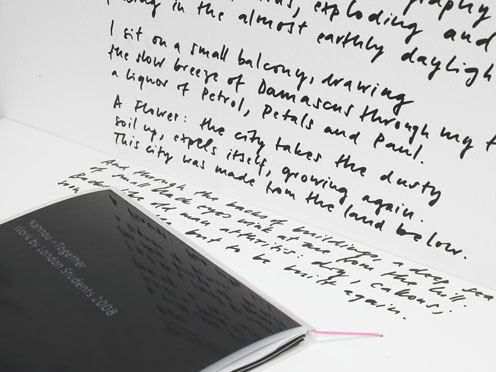 exploding and
in the almost earthly dayligh
I sit on a small balcony, drawing
the slow breeze of Damascus through my
a liquor of Petrol, Petals and Paul.
A Flower: the city takes the dusty
soil up, expels itself, growing again.
This city was made from the land below.
And through the backs of buildings, a deep
of small black eyes wink at me from the hill.
old men arthritis: dry, callous,
but to be built again.
Nahnou-Together
Work by London Students 2008